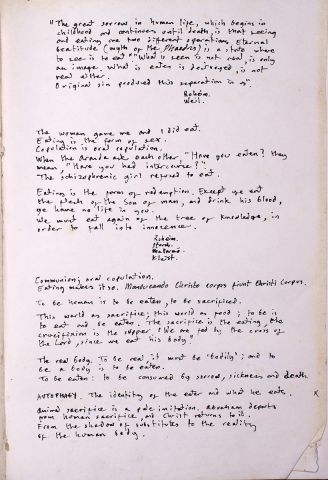 "The great sorrow in human life, which begins in
childhood and continues until death, is that seeing
and eating are two different operations. Eternal
beatitude (myth of the Phaedrus) is a state where
to see is to eat" "What is seen is not real, is only
an image. What is eaten is destroyed, is not
real either.
Original sin produced this separation in us".
Weil.
The woman gave me and I did eat.
Eating is the form of sex.
Copulation is oral copulation.
When the Aranda ask each other, "Have you eaten? they
mean "Have you had intercourse?"
The schizophrenic girl refused to eat.
Eating is the form of redemption. Except ye eat
the flesh of the Son of man, and drink his blood,
ye have no life in you.
We must eat again of the tree of knowledge, in
order to fall into innocence.
Róheim.
Kleist.
Communion; oral copulation.
Eating makes it so. Manducando Christi corpus fiunt Christi corpus.
To be human is to be eaten, to be sacrificed.
This world as sacrifice; this world as food; to be is
to eat and be eaten. The sacrifice is the eating, the
crucifixion is the supper. (We are fed by the cross of
the Lord, since we eat his body"
The real body. To be real it must be 'bodily'; and to
be a body is to be eaten.
To be eaten: to be consumed by sorrow, sickness and death
AUTOPHAGY. The identity of the eater and what he eats. x
Animal sacrifice is a pale imitation, Abraham departs
from human sacrifice, and Christ returns to it.
From the shadow of substitutes to the reality
of the human body.